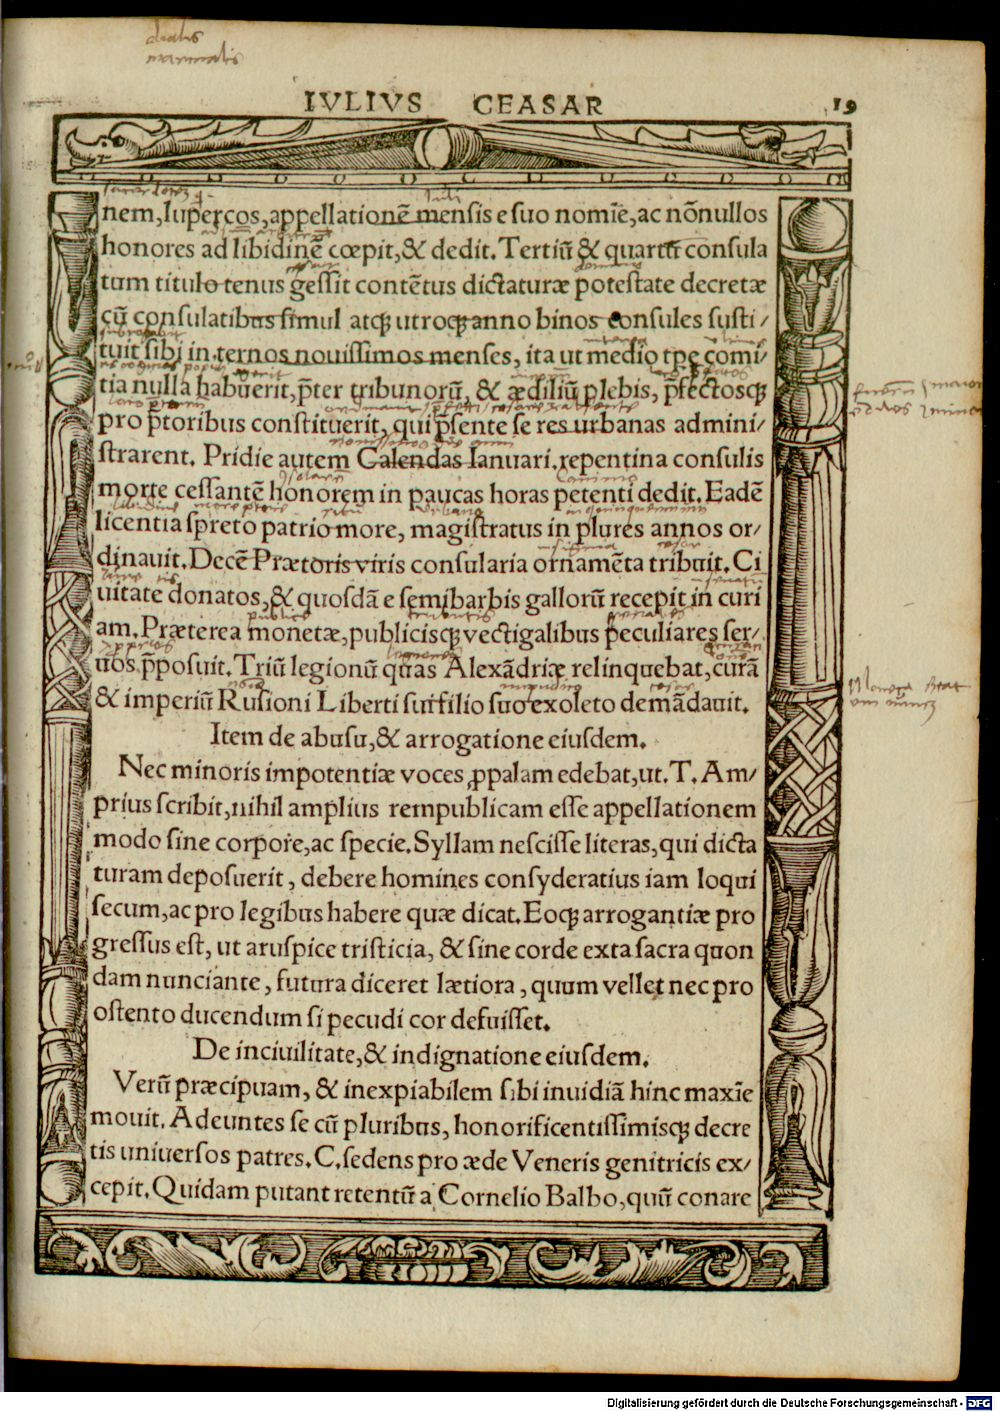 dialis
IVLIVS CEASAR 19
nem, lupercos, appellationē mensis e suo nomīe, ac nōnullos
honores ad libidinē cœpit, & dedit. Tertiū & quartū consula
tum titulo tenus gessit contētus dictaturæ potestate decretæ
cū consulatibus simul atq; utroq; anno binos consules susti/
tuit sibi in ternos nouissimos menses, ita ut medio tp̄e comi/
tia nulla habuerit, p̄ter tribunorū, & ædiliū plebis, p̄fectosq;
pro p̄toribus constituerit, qui p̄sente se res urbanas admini/
strarent. Pridie autem Calendas Ianuari. repentina consulis
morte cessantē honorem in paucas horas petenti dedit. Eadē
licentia spreto patrio more, magistratus in plures annos or/
dinauit. Decē Prætoris viris consularia ornamēta tribuit. Ci
uitate donatos, & quosdā e semibarbis gallorū recepit in curi
am. Præterea monetæ, publicisq; vectigalibus peculiares ser/
uos p̄posuit. Triū legionū quas Alexādriæ relinquebat, curā
& imperiū Rusioni Liberti sui filio suo exoleto demādauit.
Item de abusu, & arrogatione eiusdem.
Nec minoris impotentiæ voces ꝓpalam edebat, ut. T. Am/
prius scribit, nihil amplius rempublicam esse appellationem
modo sine corpore, ac specie. Syllam nescisse literas, qui dicta
turam deposuerit, debere homines consyderatius iam loqui
secum, ac pro legibus habere quæ dicat. Eoq; arrogantiæ pro
gressus est, ut aruspice tristicia, & sine corde exta sacra quon
dam nunciante, futura diceret lætiora, quum vellet nec pro
ostento ducendum si pecudi cor defuisset.
De inciuilitate, & indignatione eiusdem.
Verū præcipuam, & inexpiabilem sibi inuidiā hinc maxīe
mouit. Adeuntes se cū pluribus, honorificentissimisq; decre
tis universos patres. C. sedens pro æde Veneris genitricis ex/
cepit. Quidam putant retentū a Cornelio Balbo, quū conare
Digitalisierung gefördert durch die Deutsche Forschungsgemeinschaft - DFG